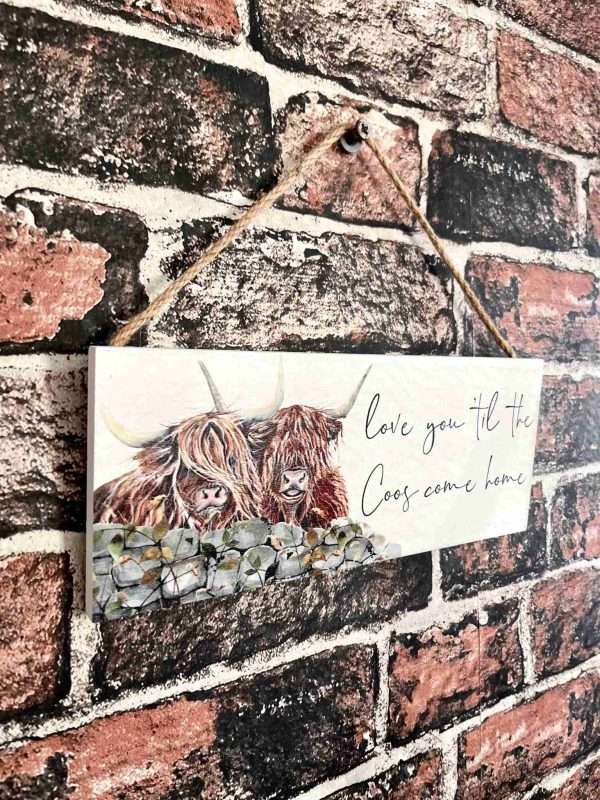 love you 'til the
Coos come home